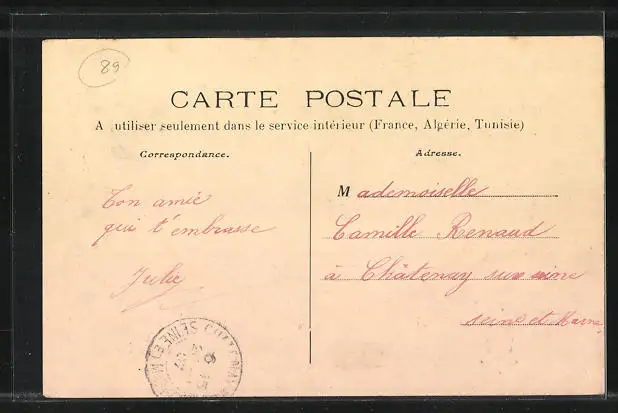 89
CARTE POSTALE
A utiliser seulement dans le service intérieur (France, Algérie, Tunisie)
Correspondance.
Ton amie
qui t'embrasse
Julie
Adresse.
Mademoiselle
Camille Renaud
à Châtenay sur seine
seine et Marne
SEINE ET M